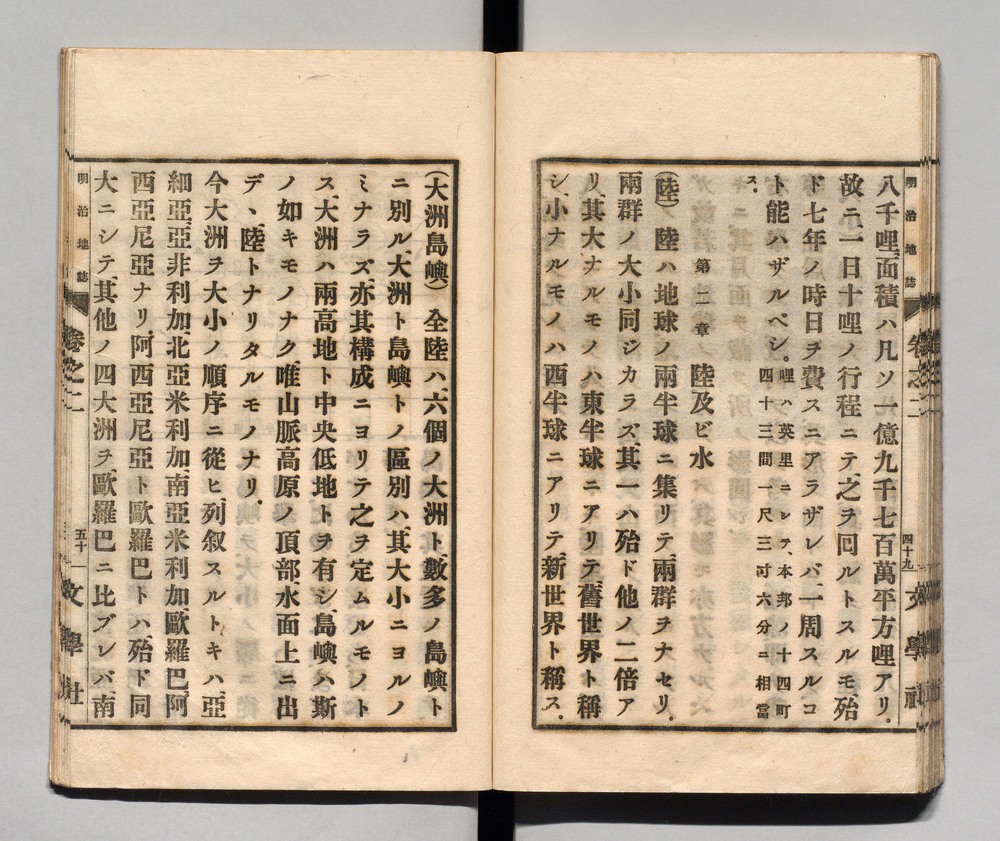 明治地誌 卷之二 四十九 文學社
八千哩、面積ハ凡ソ一億九千七百萬平方哩アリ.
故ニ、一日十哩ノ行程ニテ、之ヲ回ルトスルモ、殆
ド七年ノ時日ヲ費スニアラザレバ、一周スルコ
ト能ハザルベシ。哩ハ英里ニシテ、本邦ノ十四町
四十三間一尺三寸六分ニ相當
ス.
第二章 陸及ビ水
(陸) 陸ハ地球ノ兩半球ニ集リテ、兩群ヲナセリ.
兩群ノ大小同ジカラズ、其一ハ殆ド他ノ二倍ア
リ、其大ナルモノハ東半球ニアリテ、舊世界ト稱
シ、小ナルモノハ西半球ニアリテ、新世界ト稱ス.
(大洲島嶼) 全陸ハ、六個ノ大洲ト、數多ノ島嶼ト
ニ別ル、大洲ト島嶼トノ區別ハ、其大小ニヨルノ
ミナラズ、亦其構成ニヨリテ之ヲ定ムルモノト
ス、大洲ハ兩高地ト中央低地トヲ有シ、島嶼ハ斯
ノ如キモノナク、唯山脈高原ノ頂部、水面上ニ出
デ、陸トナリタルモノナリ.
今大洲ヲ大小ノ順序ニ從ヒ、列叙スルトキハ、亞
細亞、亞非利加、北亞米利加、南亞米利加、歐羅巴、阿
西亞尼亞ナリ、阿西亞尼亞ト歐羅巴トハ、殆ド同
大ニシテ、其他ノ四大洲ヲ、歐羅巴ニ比ブレバ、南
明治地誌 卷之二 五十 文學社